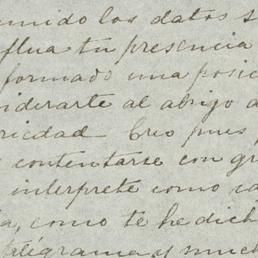 unido los datos s
flua tu presencia
formado una posic
siderarte al abrigo d
riedad Creo pues
contentarse con gr
interprete como ca
a, como te he dich
telégrama, y much